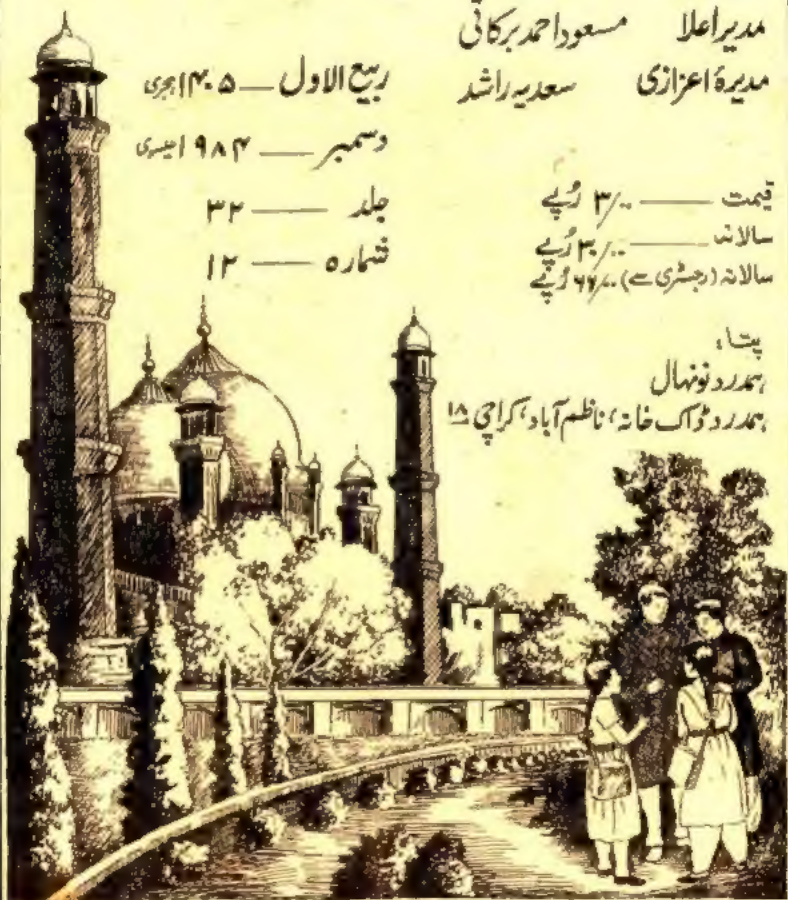 مدیر اعلا مسعود احمد برکاتی
مدیرۂ اعزازی سعدیہ راشد
ربیع الاول — ۱۴۰۵ ہجری
دسمبر — ۱۹۸۴ عیسوی
جلد — ۳۲
شماره — ۱۲
قیمت — ۳/۰۰ رُپے
سالانہ — ۳۰/۰۰ رُپے
سالانہ (رجسٹری سے) ۶۶/۰۰ رُپے
پتا:
ہمدرد نونہال
ہمدرد ڈاک خانہ، ناظم آباد، کراچی ۱۸